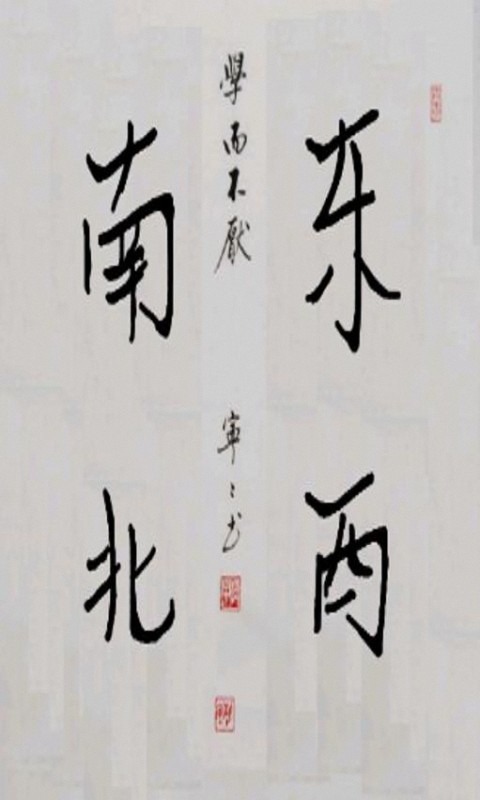 东西
南北
學而不厭
寧〻书